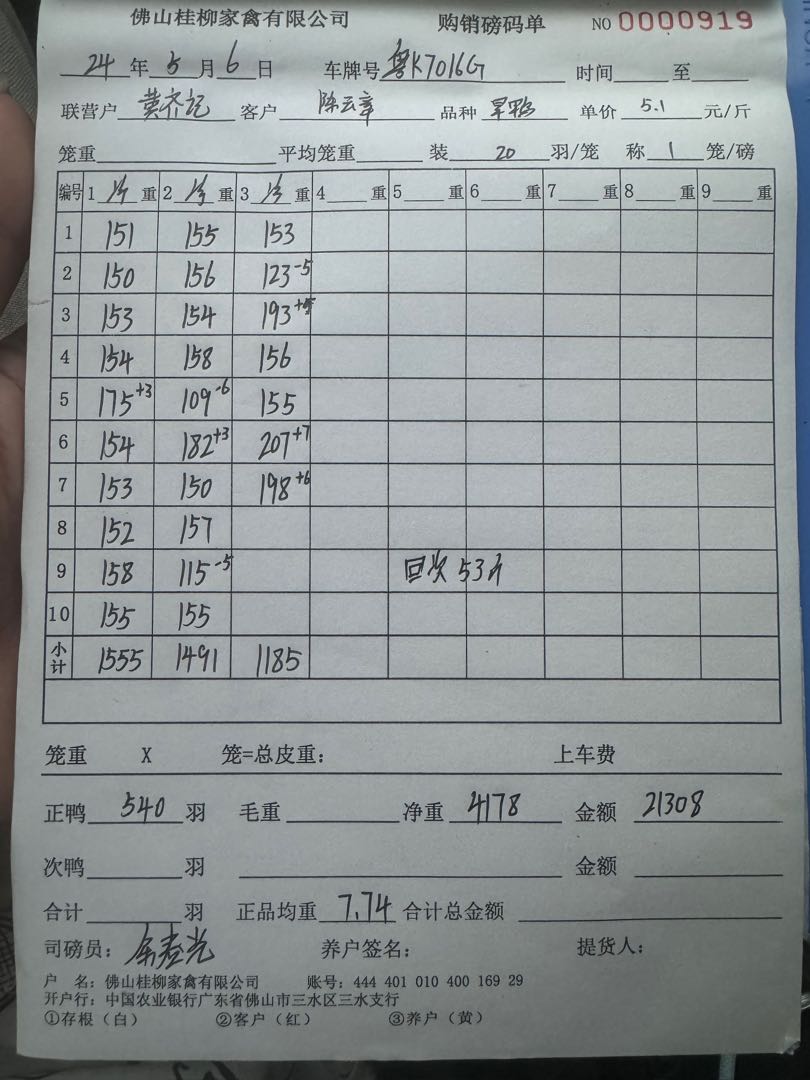 佛山桂柳家禽有限公司 购销磅码单 NO 0000919
24 年 5 月 6 日 车牌号 粤K7016G 时间 至
联营户 客户 陈云章 品种 旱鸭 单价 5.1 元/斤
笼重 平均笼重 装 20 羽/笼 称 1 笼/磅
编号 1 净 重 2 净 重 3 净 重 4 重 5 重 6 重 7 重 8 重 9 重
1 151 155 153
2 150 156 123-5
3 153 154 193
4 154 158 156
5 175+3 109-6 155
6 154 182+3 207+7
7 153 150 198+6
8 152 157
9 158 115-5 回次 53斤
10 155 155
小计 1555 1491 1185
笼重 X 笼=总皮重: 上车费
正鸭 540 羽 毛重 净重 4178 金额 21308
次鸭 羽 金额
合计 羽 正品均重 7.74 合计总金额
司磅员: 养户签名: 提货人:
户 名: 佛山桂柳家禽有限公司 账号: 444 401 010 400 169 29
开户行: 中国农业银行广东省佛山市三水区三水支行
①存根(白) ②客户(红) ③养户(黄)